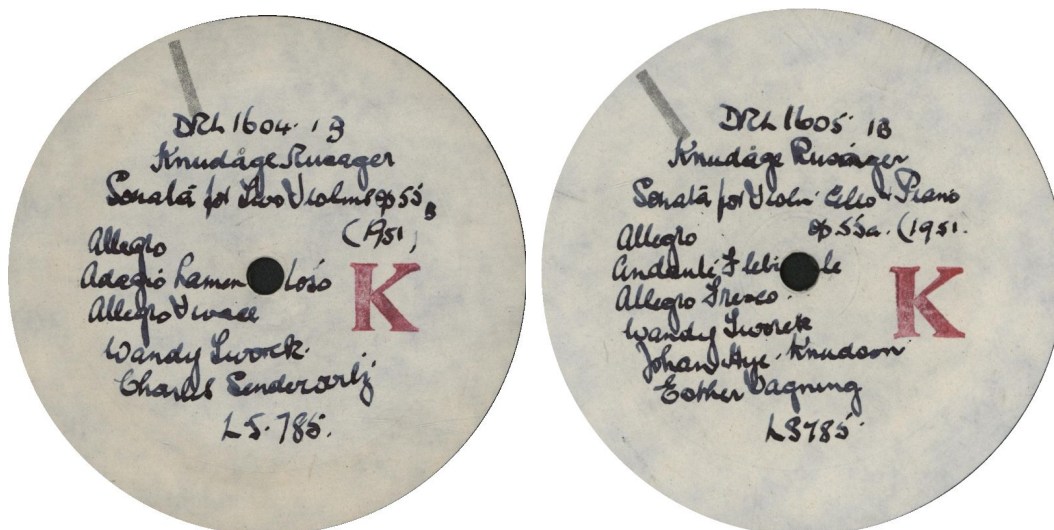 DRL 1604. 1B
Knudåge Riisager
Sonata for Two Violins op 55B
(1951)
Allegro
Adagio Lamentoso
Allegro Vivace
K
Wandy Tworek.
Charles Senderovitz
LS. 785.
DRL 1605 1B
Knudåge Riisager
Sonata for Violin Cello & Piano
op 55a. (1951.
Allegro
Andante Flebile
Allegro Fresco.
K
Wandy Tworek
Johan Hye-Knudson
Esther Vagning
LS785